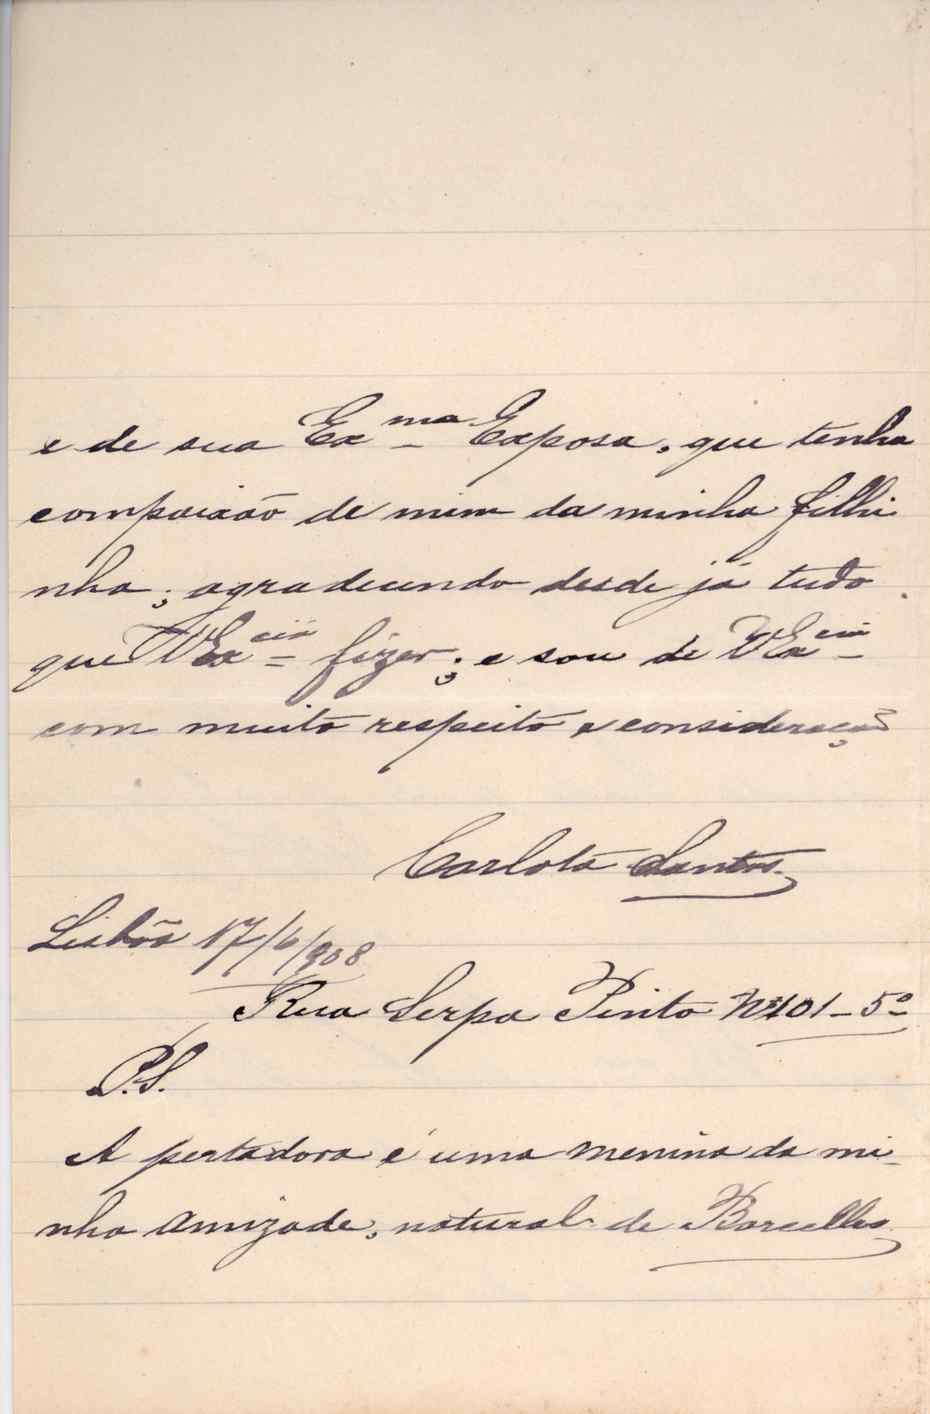 e de sua Exma Exposa, que tenha
compaixão de mim da minha filhi
nha; agradecendo desde já tudo
que VExcia fizer; e sou de VExcia
com muito respeito e consideração
Carlota Santos
Lisbôa 17/6/908
Rua Serpa Pinto Nº 101-5º
P.S.
A pertadora é uma menina da mi-
nha amizade, natural de Barcellos